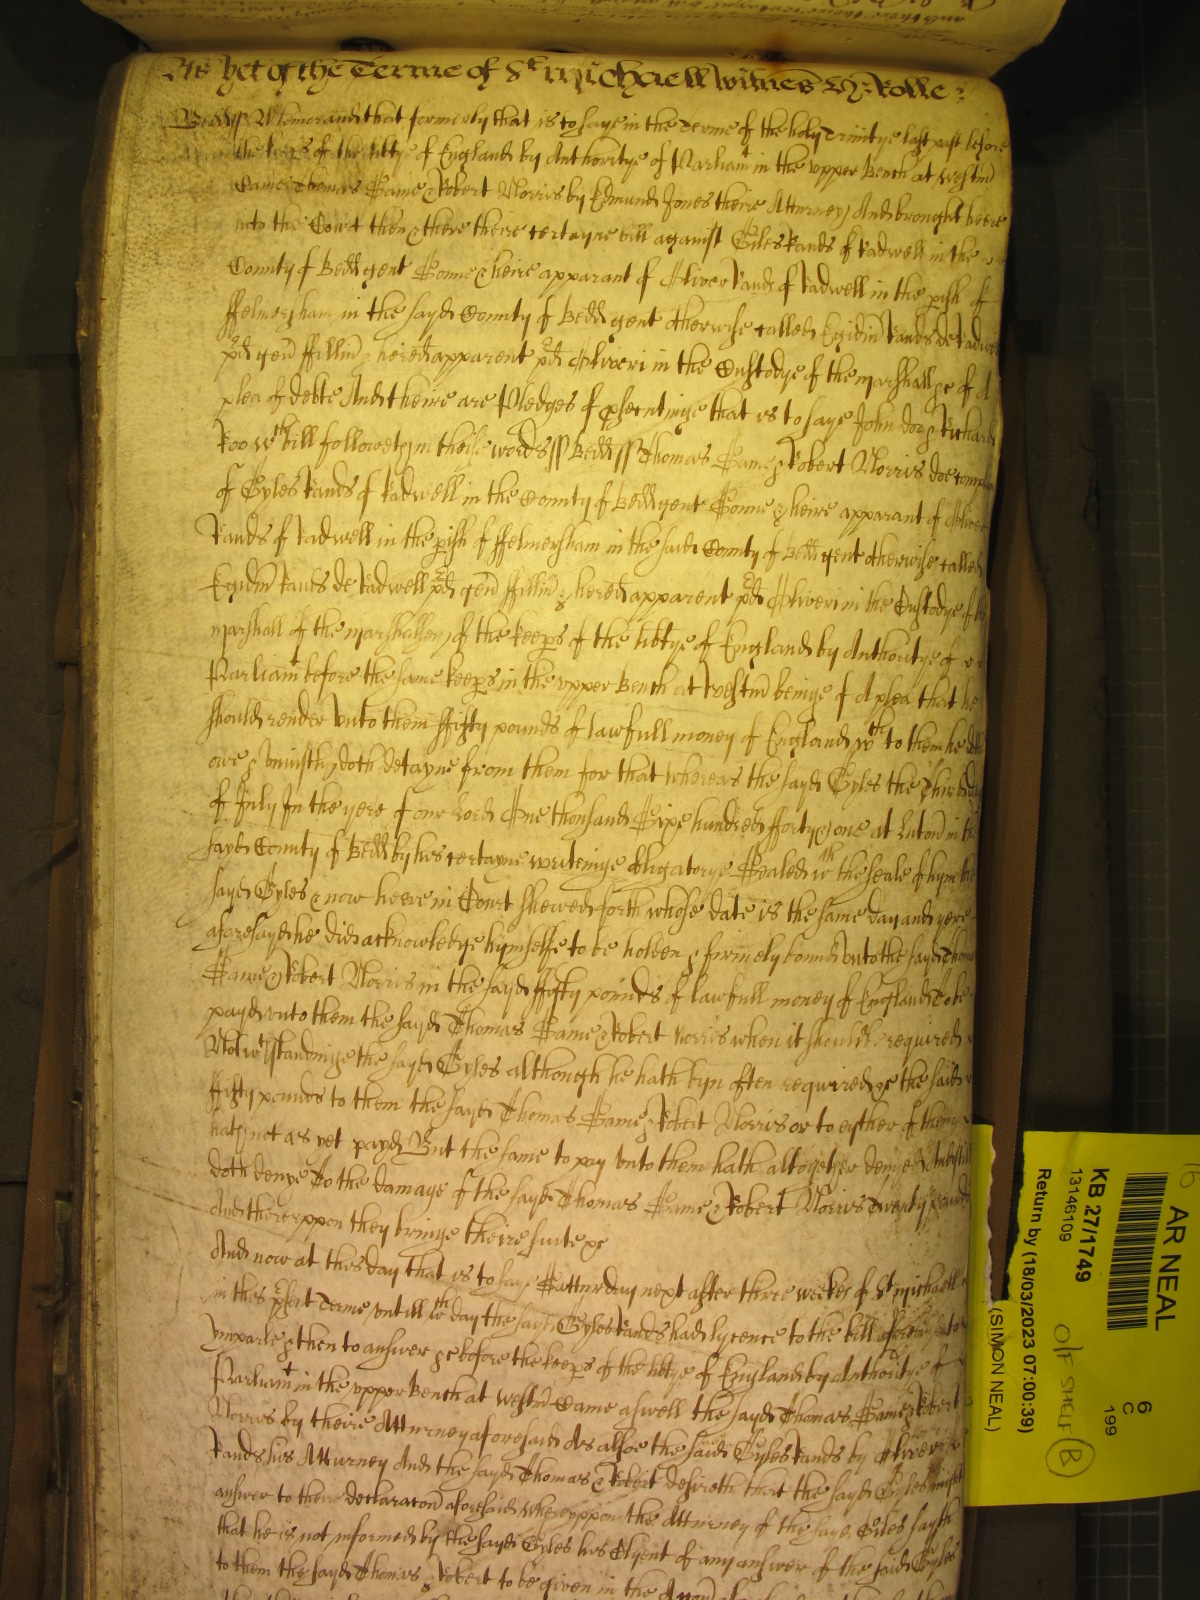 As yet of the Terme of St Michaell witnes H: Rolle:
Bedd ss Memorand that formerly that is to saye in the Terme of the holy Trinitye last past before
the keeps of the libtye of England by Authoritye of Parliamt in the upper Bench at Westm
Came Thomas Game & Robert Norris by Edmund Jones theire Atturney And brought heere
into the Court then & there theire certayne bill against Giles Rands of Radwell in the
County of Bedd gent Sonne & heire apparant of Oliver Rands of Radwell in the pish of
ffelmersham in the sayd County of Bedd gent otherwise called Egidiu Rands de Radwell
pd gen ffilliu & hered apparent pd Oliveri in the Custodye of the marshall &c of A
plea of debte And theire are Pledges of psecutinge that is to saye John doo & Richard
Roo wch bill followeth in theise words ss Bedd ss Thomas Game & Robert Norris doe complayne
of Gyles Rands of Radwell in the County of Bedd gent Sonne & heire apparant of Oliver
Rands of Radwell in the pish of ffelmersham in the said County of Bedd gent otherwise called
Egidiu Rands de Radwell pd gen ffilliu & hered apparent pd Oliveri in the Custodye of the
marshall of the marshallsey of the keeps of the libtye of England by Authoritye of
Parliamt before the same keeps in the upper Bench at Westm beinge of A plea that he
should render unto them ffifty pounds of lawfull money of England wch to them he doth
owe & uniustly doth detayne from them for that whereas the sayd Gyles the Third day
of July In the yere of our Lord One thousand Sixe hundred fforty & one at Luton in the
sayd County of Bedd by his certayne writeinge obligatorye Sealed wth the seale of hym the
sayd Gyles & now heere in Court shewed forth whose date is the same day and yere
aforesayd he did acknowledge hymselfe to be holden & firmely bound unto the sayd Thomas
Game & Robert Norris in the sayd ffifty pounds of lawfull money of England To be
payd unto them the sayd Thomas Game & Robert Norris when it should be required
Notwthstandinge the sayd Gyles although he hath byn often required &c the said
ffifty pounds to them the sayd Thomas Game & Robert Norris or to eyther of them
hath not as yet payd But the same to pay unto them hath altogether denyed And still
doth denye To the damage of the sayd Thomas Game & Robert Norris Twenty pounds
And thereuppon they bringe theire suite &c
And now at this day that is to saye Satturday next after three weekes of St Michaell
in this psent Terme untill wch day the sayd Gyles Rands had lycence to the bill aforesayd to
ymparle & then to answer &c before the keeps of the libtye of England by Authoritye of
Parliamt in the upper Bench at Westm Came aswell the sayd Thomas Game & Robert
Norris by theire Atturney aforesaid As alsoe the said Gyles Rands by Oliver
Rands his Atturney And the sayd Thomas & Robert desireth that the sayd Gyles might
answer to their declaracon aforesaid whereuppon the Atturney of the sayd Giles sayth
that he is not informed by the sayd Gyles his Clyent of any answer of the said Gyles
to them the sayd Thomas & Robert to be given in the
AR NEAL
KB 27/1749
13146109
Return by (18/03/2023 07:00:39)
(SIMON NEAL)
O/F SHELF B
6
C
199